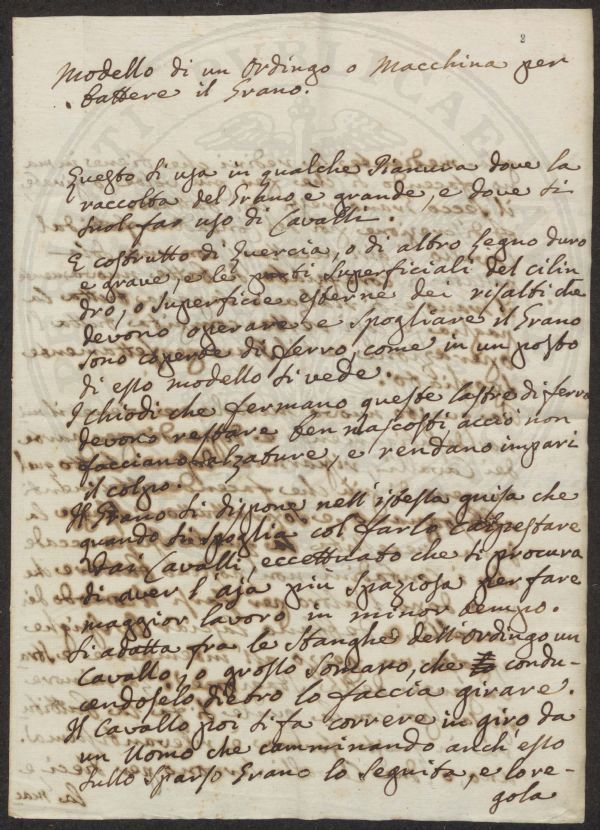 2
Modello di un Ordingo o Macchina per
battere il Grano.
Questo si usa in qualche Pianura dove la
raccolta del Grano è grande, e dove si
suol far uso di Cavalli.
È costrutto di Quercia, o di altro legno duro
e grave, e le parti superficiali del cilin
dro, o superficie esterne dei risalti che
devono operare e spogliare il Grano
sono coperte di ferro, come in un posto
di esso modello si vede.
I chiodi che fermano queste lastre di ferro
devono restare ben nascosti acciò non
facciano alzature, e rendano impari
il colpo.
Il Grano si dispone nell'istessa guisa che
quando si spoglia col farlo calpestare
dai Cavalli, eccettuato che si procura
di aver l'aja più spaziosa per fare
maggior lavoro in minor tempo.
Si adatta fra le stanghe dell'ordingo un
Cavallo, o grosso Somaro, che condu-
cendoselo dietro lo faccia girare.
Il Cavallo poi si fa correre in giro da
un Uomo che camminando anch'esso
sullo sparso Grano lo seguita, e lo re-
gola